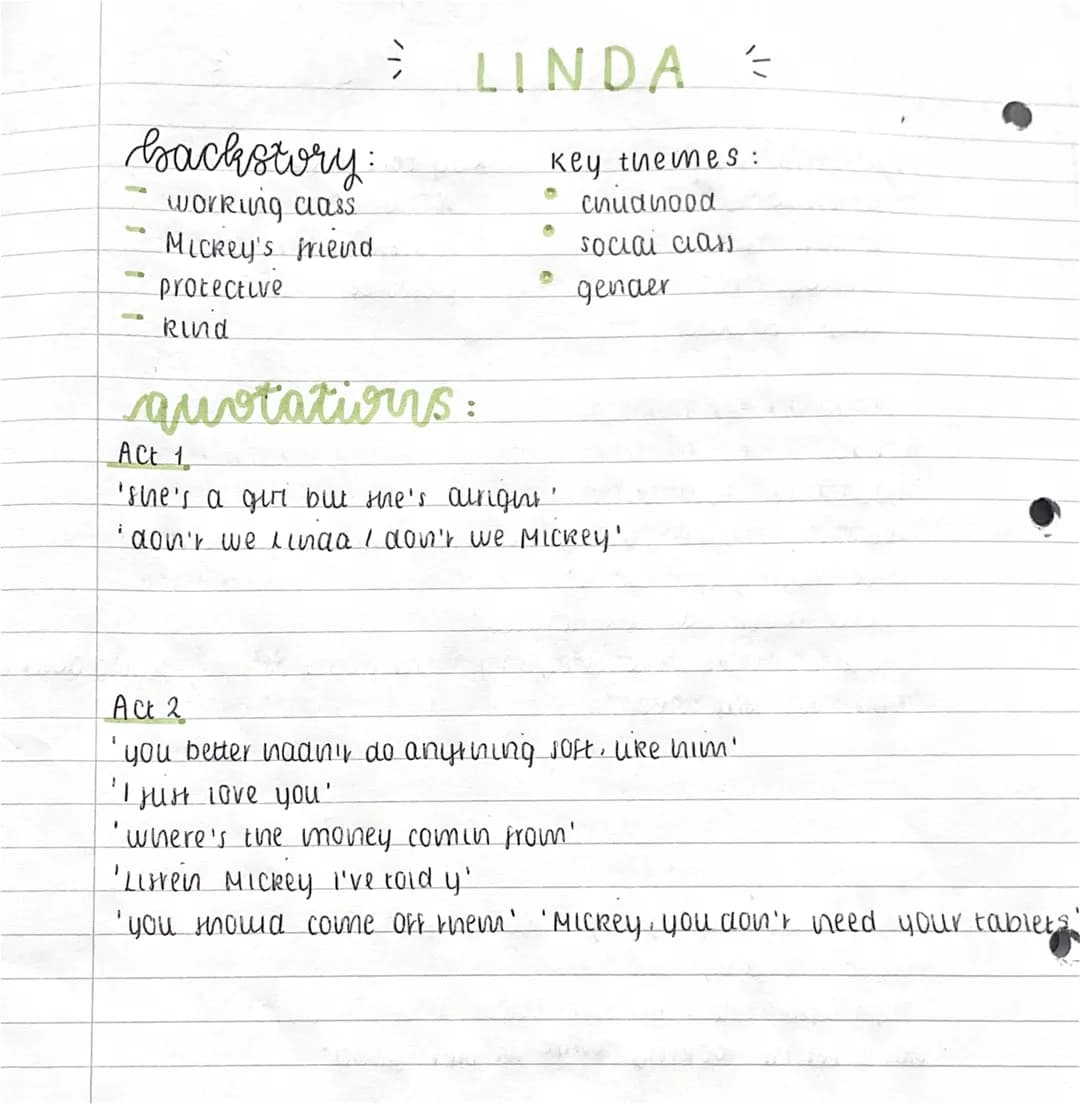 LINDA
backstory:
- working class
- Mickey's friend
- protective
- kind
key themes:
• childhood
• social class
• gender
quotations:
Act 1
'she's a girl but she's alright'
'don't we Linda / don't we Mickey'
Act 2
'you better hadn't do anything soft, like him'
'I just love you'
'where's the money comin from'
'Listen Mickey I've told y'
'you should come off them' 'Mickey, you don't need your tablets'